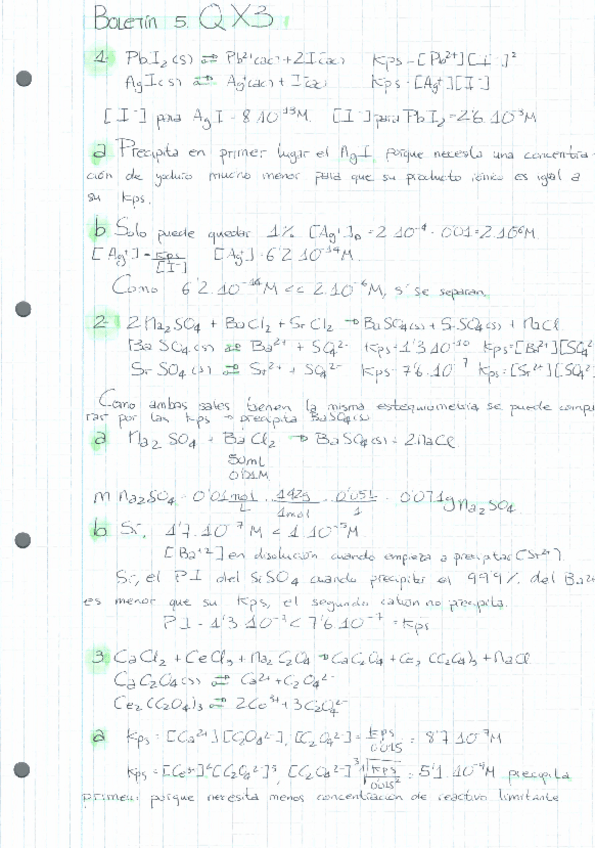 Boletín 5. QX3
1- PbI₂(s) ⇌ Pb²⁺(ac)+2I⁻(ac) Kps=[Pb²⁺][I⁻]²
AgI(s) ⇌ Ag⁺(ac)+I⁻(ac) Kps=[Ag⁺][I⁻]
[I⁻] para AgI = 8·10⁻¹³M. [I⁻] para PbI₂=2'6·10⁻³M
a Precipita en primer lugar el AgI porque necesita una concentra-
ción de yoduro mucho menor para que su producto iónico es igual a
su Kps.
b Solo puede quedar 1% [Ag⁺]₀=2·10⁻⁴·0'01=2·10⁻⁶M
[Ag⁺]=Kps/[I⁻] [Ag⁺]=6'2·10⁻¹⁴M
Como 6'2·10⁻¹⁴M << 2·10⁻⁶M, sí se separan
2- 2Na₂SO₄ + BaCl₂ + SrCl₂ → BaSO₄(s) + SrSO₄(s) + NaCl
BaSO₄(s) ⇌ Ba²⁺ + SO₄²⁻ Kps=1'3·10⁻¹⁰ Kps=[Ba²⁺][SO₄²
SrSO₄(s) ⇌ Sr²⁺ + SO₄²⁻ Kps=7'6·10⁻⁷ Kps=[Sr²⁺][SO₄²
Como ambas sales tienen la misma estequiometría se puede compa-
rar por las Kps → precipita BaSO₄(s)
a Na₂SO₄ + BaCl₂ → BaSO₄(s) + 2NaCl
50mL
0'01M
m Na₂SO₄ = 0'01mol/L · 142g/1mol · 0'05L/1 = 0'071g Na₂SO₄
b Sí, 1'7·10⁻⁷M < 1·10⁻⁵M
[Ba⁺²] en disolución cuando empieza a precipitar (Sr²⁺)
Sí, el PI del SrSO₄ cuando precipita el 99'9% del Ba²⁺
es menor que su Kps, el segundo catión no precipita.
< 7'6·10⁻⁷ = Kps
3 CaCl₂ + CeCl₃ + Na₂C₂O₄ → CaC₂O₄ + Ce₂(C₂O₄)₃ + NaCl
CaC₂O₄(s) ⇌ Ca²⁺ + C₂O₄²⁻
Ce₂(C₂O₄)₃ ⇌ 2Ce³⁺ + 3C₂O₄²⁻
a Kps=[Ca²⁺][C₂O₄²⁻], [C₂O₄²⁻]=Kps/0'015 = 8'7·10⁻⁷M
[C₂O₄²⁻]=³√Kps/0'015² = precipita
primero porque necesita menos concentración de reactivo limitante